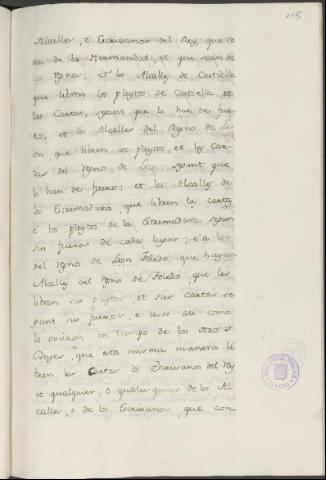 115
Alcalles, é Escrivanos del Rey, que se
an de la Hermandat, et que sean de
los Rynos; et los Alcalles de Castiella
que libren los pleytos de Castiella, et
las Cartas, segunt que lo han de fue
ro; et los Alcalles del Ryno de Le
on, que libren los pleytos, et las Car
tas del Ryno de Leon: segunt que
o han de fuero; et los Alcalles de
la Estremadura, que libren las cartas
é los pleytos de la Estremadura segun
sus fueros de cada lugar; é a los
del Ryno de Leon Toledo, que hayan
Alcalles del Ryno de Toledo, que les
libran sus pleytos, et sus cartas se
gunt sus fueros, é usos asi como
lo ovieron en tiempo de los otros
Reyes, que esta misma manera li
bren las Cartas los Escrivanos del Ry
et qualquier, o qualesquier de los Al
calles, o de los Escrivanos, que con